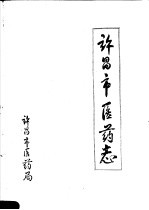 许昌市医药志
许昌市医药局